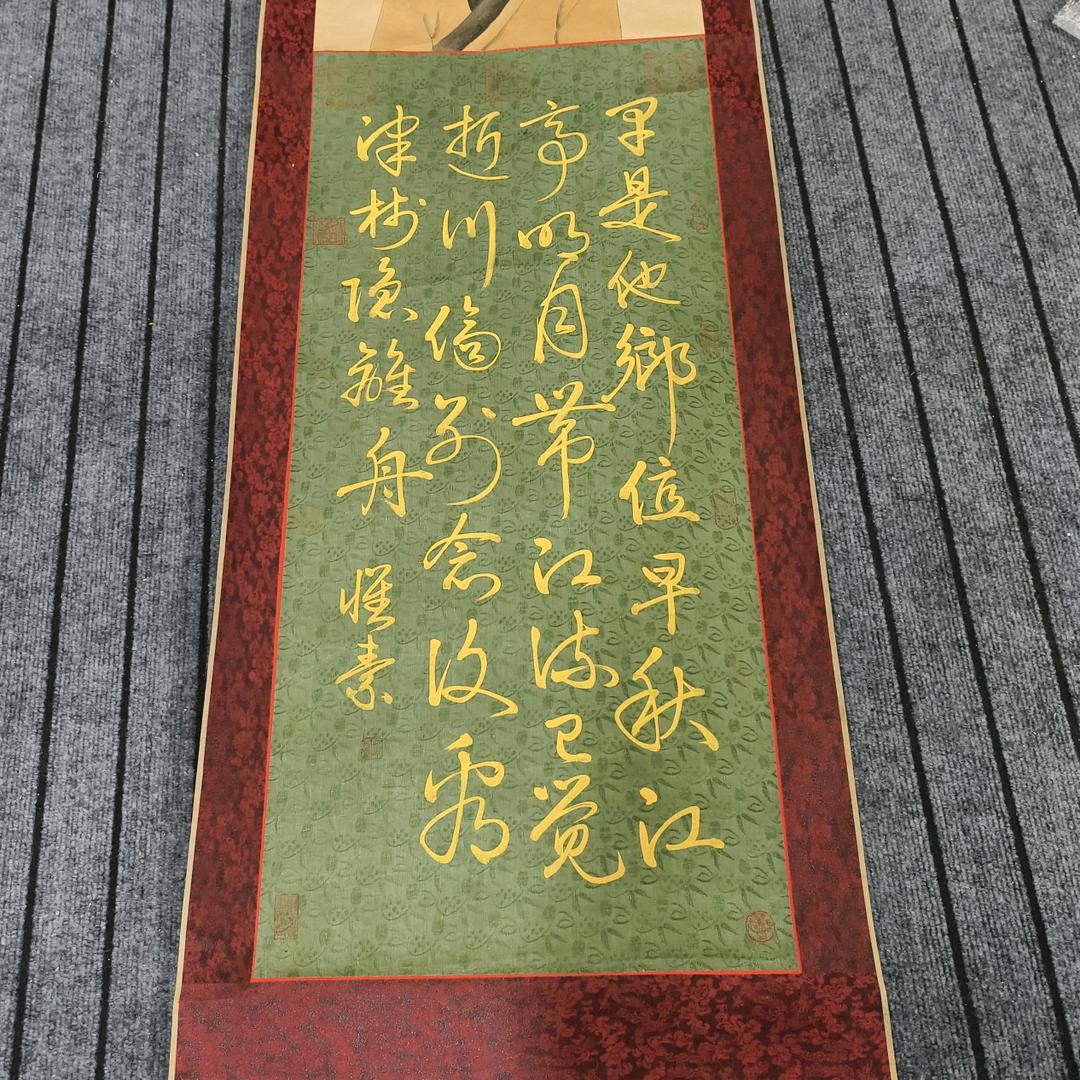 早是他鄉值早秋江
亭明月帶江流已覺
逝川傷別念復看
津樹隱離舟 懷素